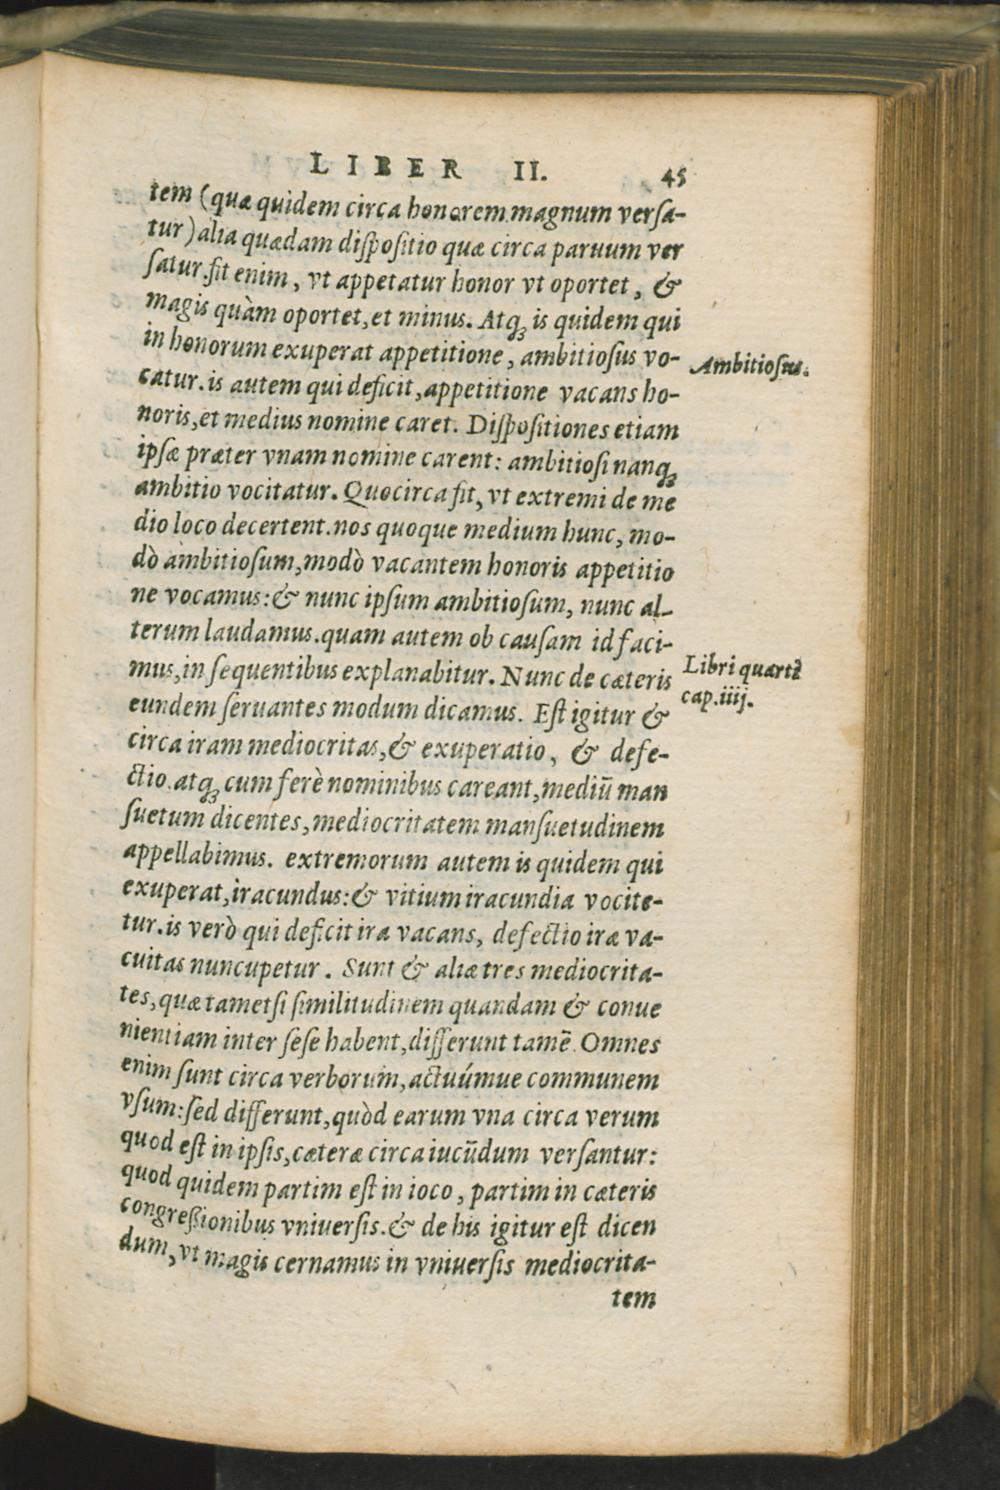 LIBER II. 45
tem (quæ quidem circa honorem magnum versa-
tur) alia quædam dispositio quæ circa paruum ver
satur. fit enim, vt appetatur honor vt oportet, &
magis quàm oportet, et minus. Atq; is quidem qui
in honorum exuperat appetitione, ambitiosus vo-
Ambitiosus.
catur. is autem qui deficit, appetitione vacans ho-
noris, et medius nomine caret. Dispositiones etiam
ipsæ præter vnam nomine carent: ambitiosi nanq;
ambitio vocitatur. Quocirca fit, vt extremi de me
dio loco decertent. nos quoque medium hunc, mo-
dò ambitiosum, modò vacantem honoris appetitio
ne vocamus: & nunc ipsum ambitiosum, nunc al-
terum laudamus. quam autem ob causam id faci-
mus, in sequentibus explanabitur. Nunc de cæteris
Libri quarti
cap. iiij.
eundem seruantes modum dicamus. Est igitur &
circa iram mediocritas, & exuperatio, & defe-
ctio. atq; cum ferè nominibus careant, mediũ man
suetum dicentes, mediocritatem mansuetudinem
appellabimus. extremorum autem is quidem qui
exuperat, iracundus: & vitium iracundia vocite-
tur. is verò qui deficit ira vacans, defectio iræ va-
cuitas nuncupetur. Sunt & aliæ tres mediocrita-
tes, quæ tametsi similitudinem quandam & conue
nientiam inter sese habent, differunt tamẽ. Omnes
enim sunt circa verborum, actuúmue communem
vsum: sed differunt, quòd earum vna circa verum
quod est in ipsis, cæteræ circa iucũdum versantur:
quod quidem partim est in ioco, partim in cæteris
congressionibus vniuersis. & de his igitur est dicen
dum, vt magis cernamus in vniuersis mediocrita-
tem